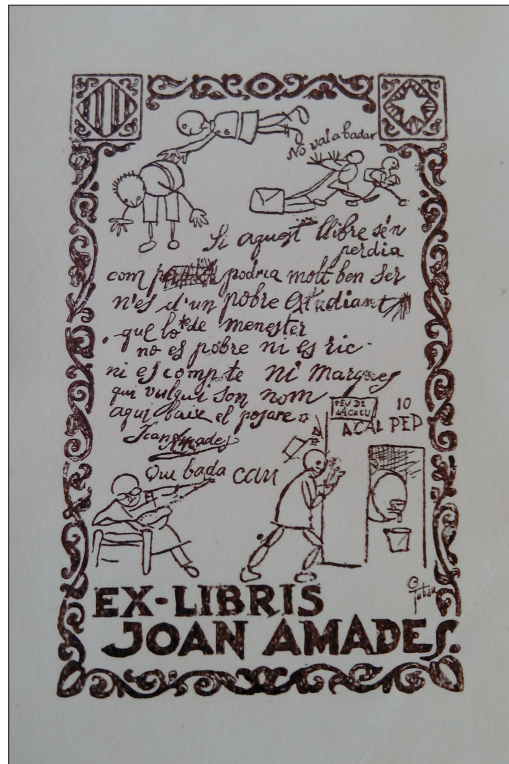 No val a badar
Si aquest llibre s'en
perdia
com podria molt ben ser
n'es d'un pobre estudiant
que lo te de menester
no es pobre ni es ric
ni es compte ni marques
qui vulgui son nom
aqui baix el posare
Joan Amades
Qui bada cau
PEU DE
LA CREU
10
A CAL PEP
EX-LIBRIS
JOAN AMADES.